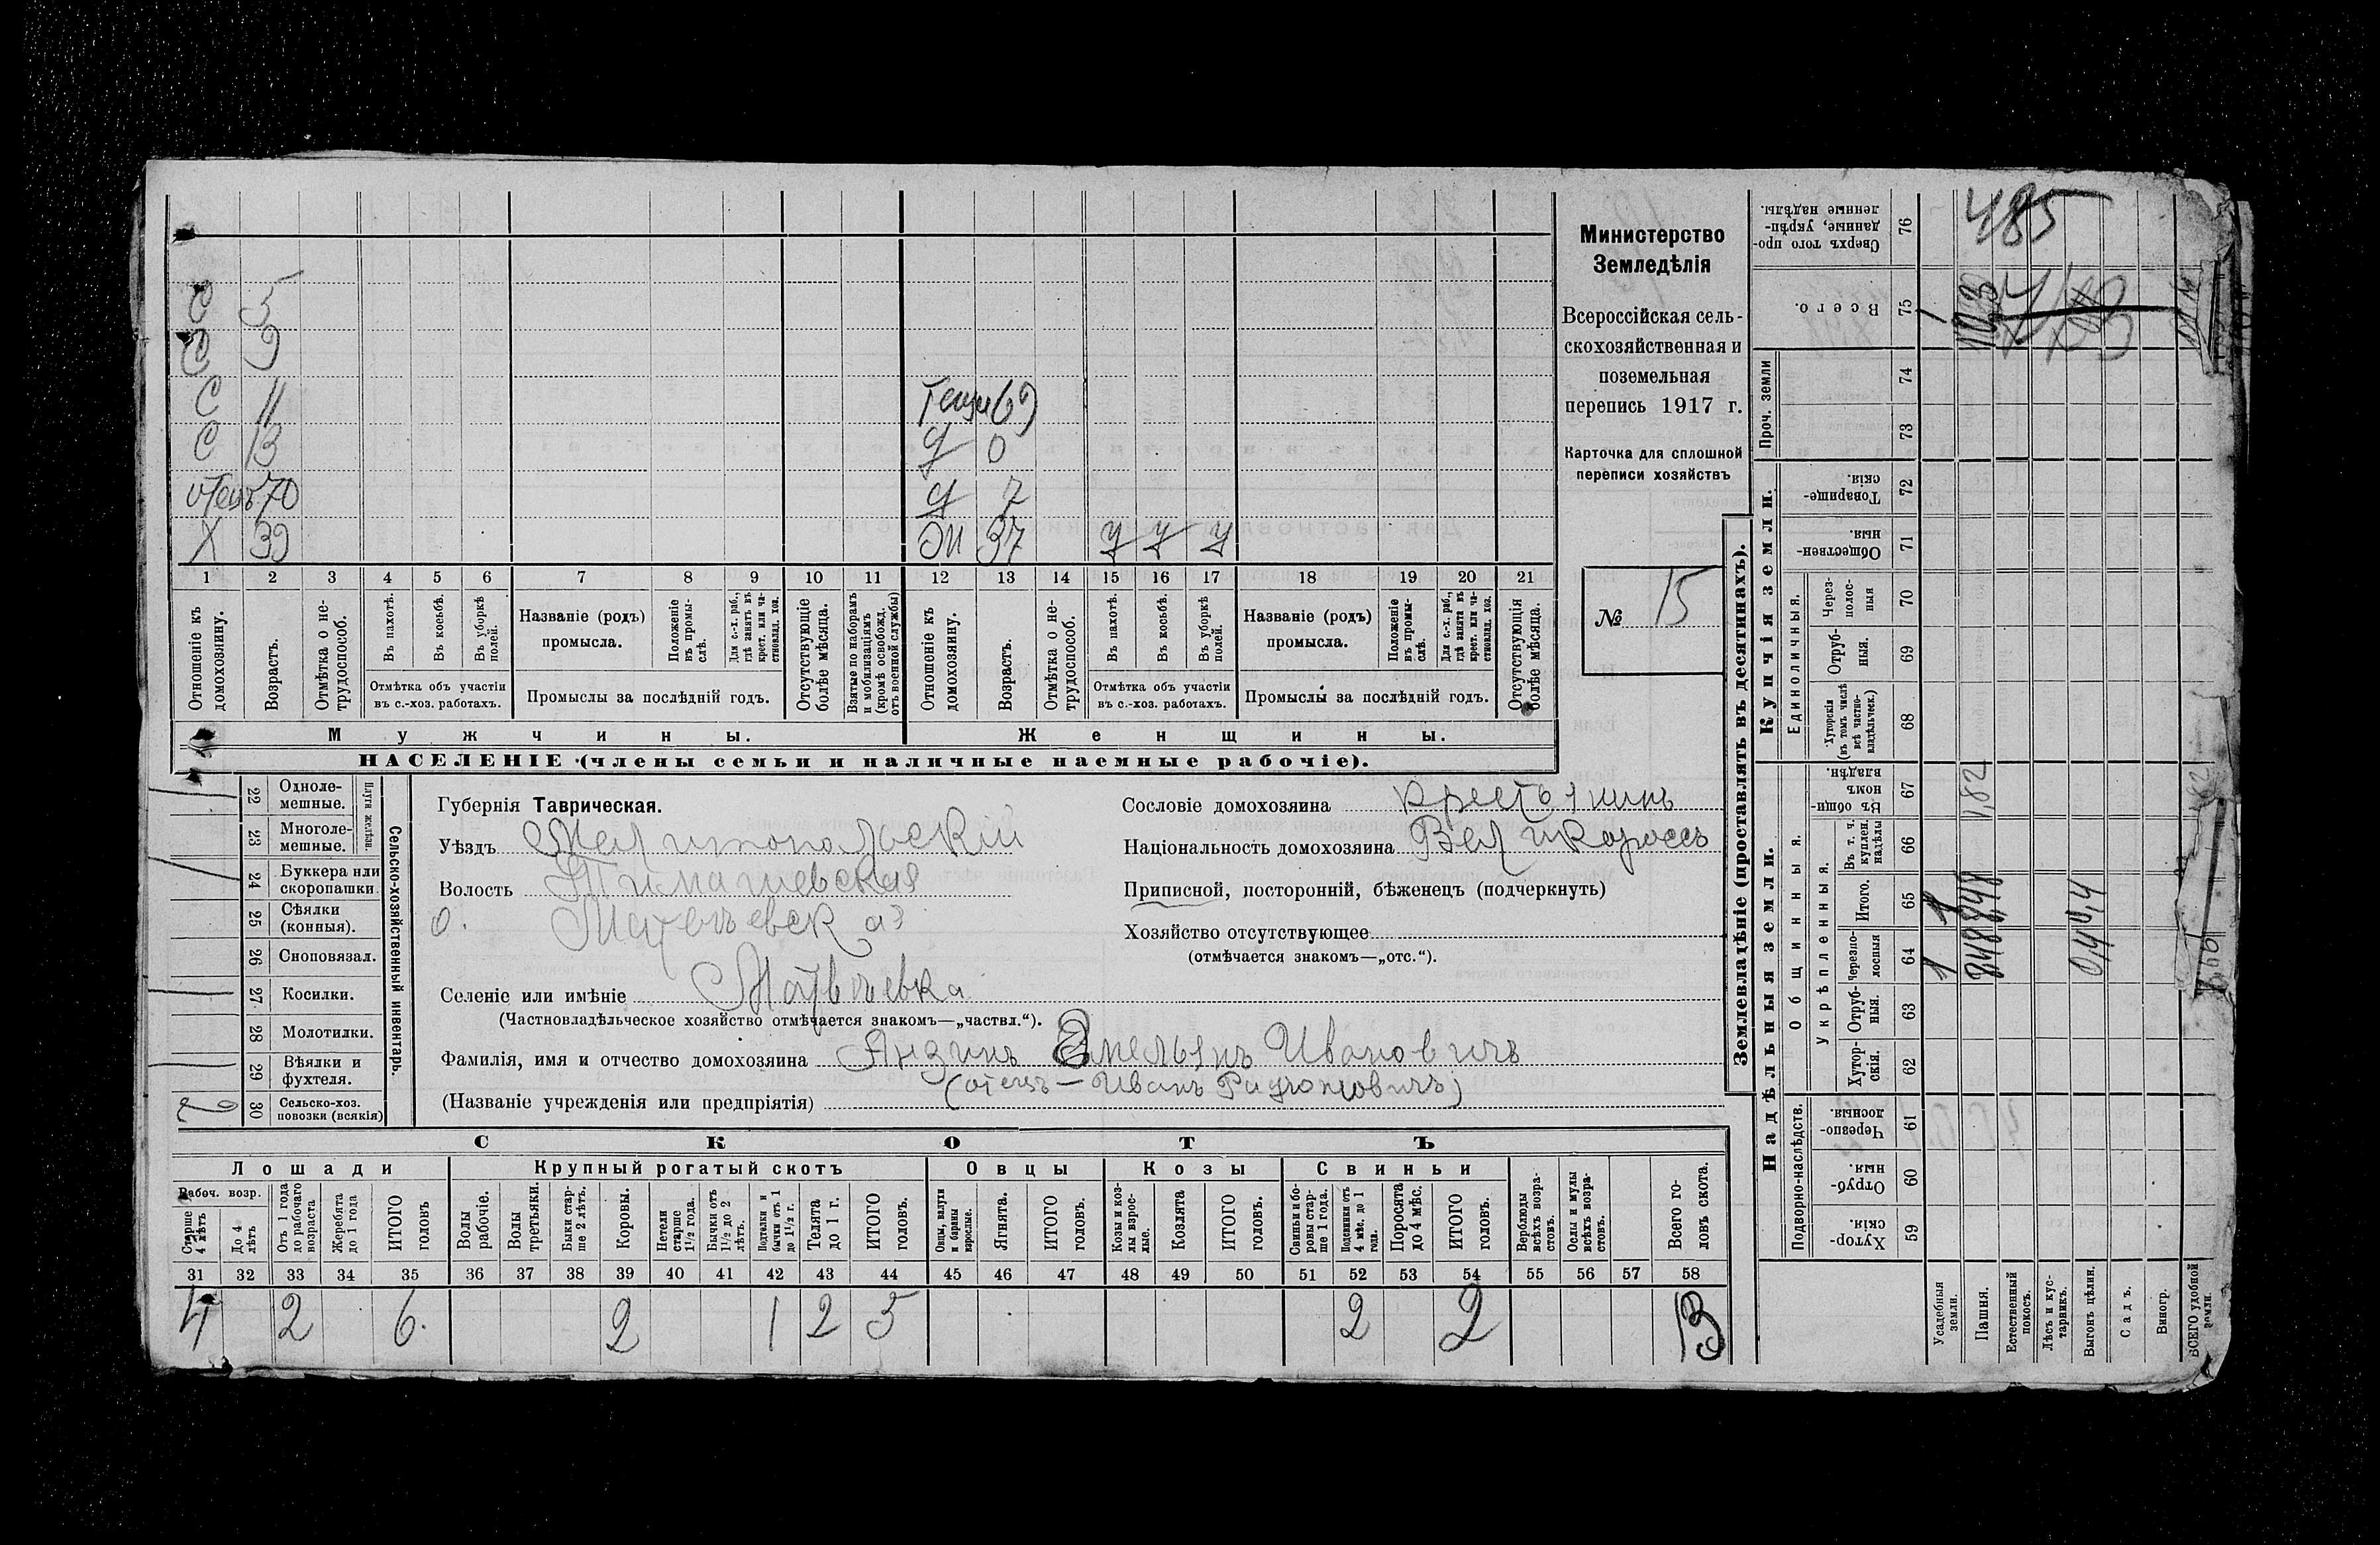 Министерство
Земледѣлія
Всероссійская сель-
скохозяйственная и
поземельная
перепись 1917 г.
Карточка для сплошной
переписи хозяйствъ
№ 15
С 5
С 9
С 11 Теща 69
С 13 Д 0
отецъ 70 Д 7
Х 39 Ж 37 У У У
1 2 3 4 5 6 7 8 9 10 11 12 13 14 15 16 17 18 19 20 21
Отношеніе къ домохозяину.
Возрастъ.
Отмѣтка о не-трудоспособ.
Въ пахотѣ.
Въ косьбѣ.
Въ уборкѣ полей.
Отмѣтка объ участіи
въ с.-хоз. работахъ.
Названіе (родъ)
промысла.
Положеніе въ промы-слѣ.
Для с.-х. раб., гдѣ занятъ въ крест. или ча-стновлад. хоз.
Промыслы за послѣдній годъ.
Отсутствующіе болѣе мѣсяца.
Взятые по наборамъ и мобилизаціямъ (кромѣ освобожд. отъ военной службы)
Отношеніе къ домохозяину.
Возрастъ.
Отмѣтка о не-трудоспособ.
Въ пахотѣ.
Въ косьбѣ.
Въ уборкѣ полей.
Отмѣтка объ участіи
въ с.-хоз. работахъ.
Названіе (родъ)
промысла.
Положеніе въ промы-слѣ.
Для с.-х. раб., гдѣ занята въ крест. или ча-стновлад. хоз.
Промыслы за послѣдній годъ.
Отсутствующія болѣе мѣсяца.
Мужчины.
Женщины.
НАСЕЛЕНІЕ (члены семьи и наличные наемные рабочіе).
22 Одноле-мешные.
23 Многоле-мешные.
Плуги желѣзн.
24 Буккера или скоропашки
25 Сѣялки (конныя).
26 Сноповязал.
27 Косилки.
28 Молотилки.
29 Вѣялки и фухтеля.
30 Сельско-хоз. повозки (всякія)
2
Сельско-хозяйственный инвентарь.
Губернія Таврическая.
Уѣздъ Мелитопольскій
Волость Тимашевская
о. Матвѣевская
Селеніе или имѣніе Матвѣевка
(Частновладѣльческое хозяйство отмѣчается знакомъ—„частвл.“).
Фамилія, имя и отчество домохозяина Янзинъ Емельянъ Ивановичъ
(отецъ — Иванъ Родіоновичъ)
(Названіе учрежденія или предпріятія)
Сословіе домохозяина крестьянинъ
Національность домохозяина Великороссъ
Приписной, посторонній, бѣженецъ (подчеркнуть)
Хозяйство отсутствующее
(отмѣчается знакомъ—„отс.“).
СКОТЪ
Лошади Крупный рогатый скотъ Овцы Козы Свиньи
Рабоч. возр.
Старше 4 лѣтъ
До 4 лѣтъ
Отъ 1 года до рабочаго возраста
Жеребята до 1 года
ИТОГО головъ
Волы рабочіе.
Волы третьяки.
Быки стар-ше 2 лѣтъ.
Коровы.
Нетели старше 1½ года.
Бычки отъ 1½ до 2 лѣтъ.
Подтелки и бычки отъ 1 до 1½ г.
Телята до 1 г.
ИТОГО головъ.
Овцы, валухи и бараны взрослые.
Ягнята.
ИТОГО головъ.
Козы и коз-лы взрос-лые.
Козлята
ИТОГО головъ.
Свиньи и бо-ровы стар-ше 1 года.
Подсвинки отъ 4 мѣс. до 1 года.
Поросята до 4 мѣс.
ИТОГО головъ.
Верблюды всѣхъ возра-стовъ.
Ослы и мулы всѣхъ возра-стовъ.
Всего го-ловъ скота.
31 32 33 34 35 36 37 38 39 40 41 42 43 44 45 46 47 48 49 50 51 52 53 54 55 56 57 58
4 2 6. 2 1 2 5 2 2 13
Землевладѣніе (проставлять въ десятинахъ).
Надѣльныя земли.
Купчія земли.
Проч. земли
Подворно-наслѣдств.
Общинныя.
Укрѣпленныя.
Единоличныя.
Сверхъ того про-данные, укрѣп-ленные надѣлы. 76
Всего. 75
74
73
Товарище-скія. 72
Обществен-ныя. 71
Через-полос-ныя 70
Отруб-ныя. 69
Хуторскія (въ томъ числѣ всѣ частно-владѣльческ.) 68
Въ общи-номъ владѣн. 67
Въ т. ч. куплен. надѣлы 66
Итого. 65
Черезпо-лосныя 64
Отруб-ныя. 63
Хутор-скія. 62
Черезпо-лосныя 61
Отруб-ныя. 60
Хутор-скія. 59
Усадебныя земли.
Пашня.
Естественный покосъ.
Лѣсъ и кус-тарникъ.
Выгонъ цѣлин.
Садъ.
Виногр.
ВСЕГО удобной земли.
485
1 1
8,48 8,48 1,82
0,4 0,4